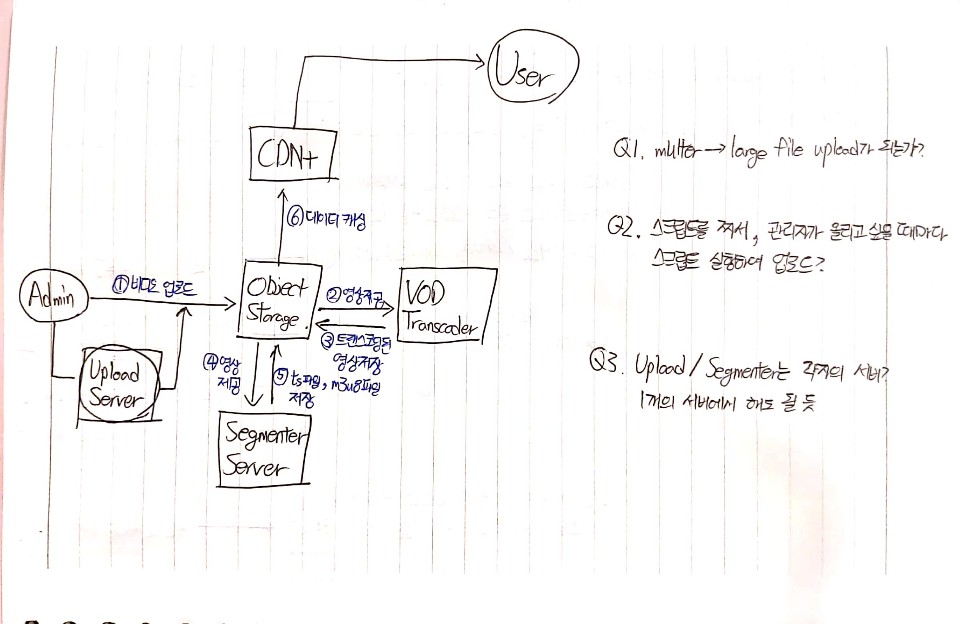 User
CDN+
⑥데이터 캐싱
Admin
①비디오 업로드
Object
Storage
②영상제공
VOD
Transcoder
③트랜스코딩된
영상저장
Upload
Server
④영상
제공
⑤ts파일, m3u8파일
저장
Segmenter
Server
Q1. multer → large file upload가 되는가?
Q2. 스크립트를 짜서, 관리자가 올리고 싶을 때마다
스크립트 실행하여 업로드?
Q3. Upload / Segmenter는 각자의 서버?
1개의 서버에서 해도 될 듯